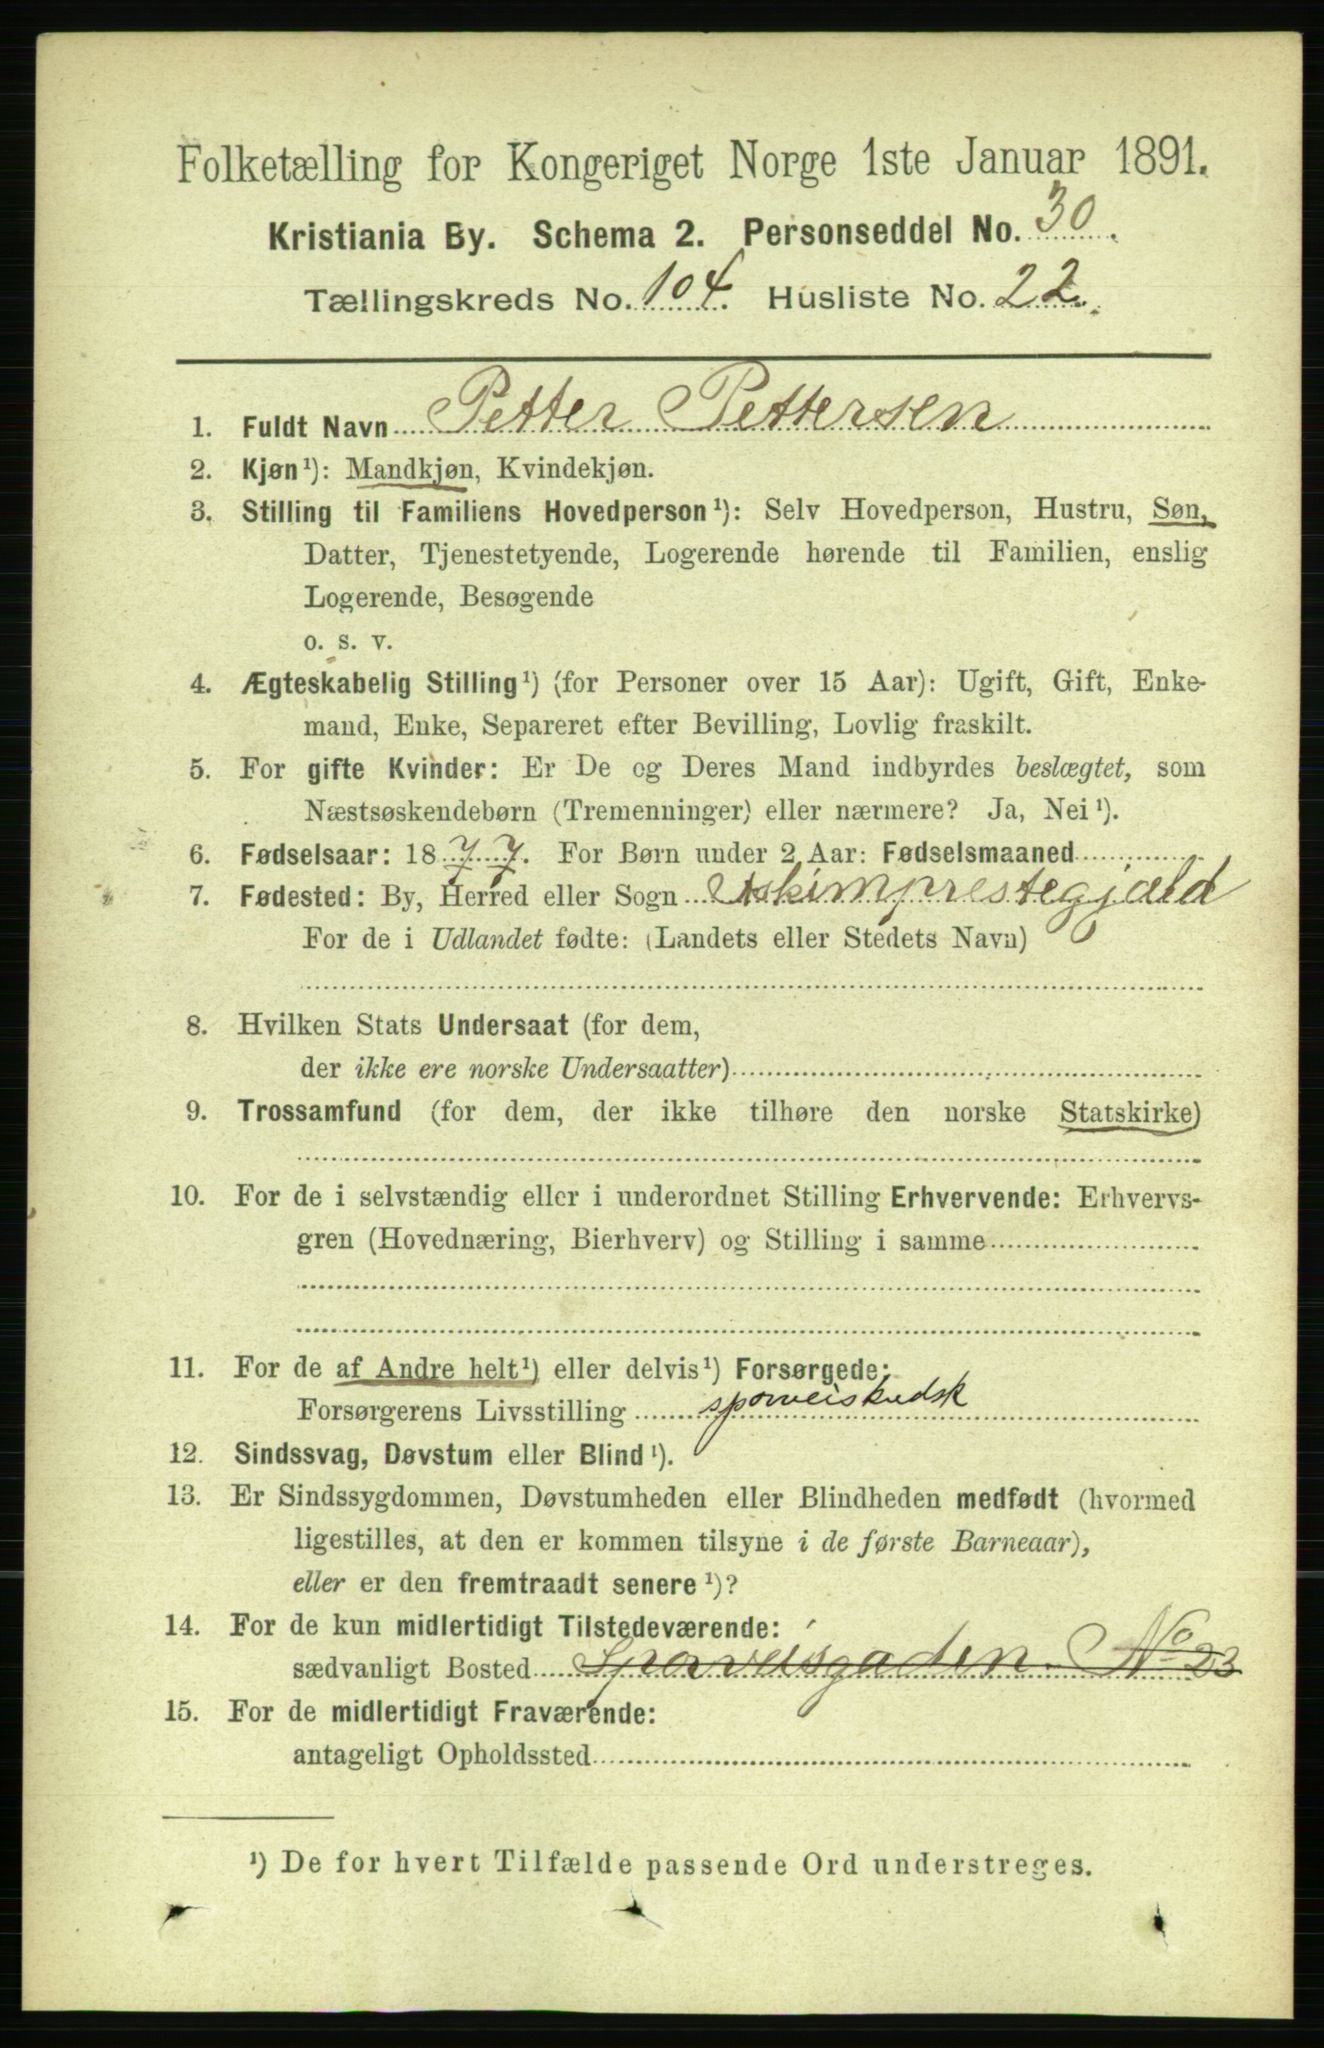 Folketælling for Kongeriget Norge 1ste Januar 1891.
Kristiania By. Schema 2. Personseddel No. 30.
Tællingskreds No. 104. Husliste No. 22.
1. Fuldt Navn Petter Pettersen
2. Kjøn¹): Mandkjøn, Kvindekjøn.
3. Stilling til Familiens Hovedperson¹): Selv Hovedperson, Hustru, Søn,
Datter, Tjenestetyende, Logerende hørende til Familien, enslig
Logerende, Besøgende
o. s. v.
4. Ægteskabelig Stilling¹) (for Personer over 15 Aar): Ugift, Gift, Enke-
mand, Enke, Separeret efter Bevilling, Lovlig fraskilt.
5. For gifte Kvinder: Er De og Deres Mand indbyrdes beslægtet, som
Næstsøskendebørn (Tremenninger) eller nærmere? Ja, Nei¹).
6. Fødselsaar: 1877. For Børn under 2 Aar: Fødselsmaaned
7. Fødested: By, Herred eller Sogn Askimprestegjæld
For de i Udlandet fødte: (Landets eller Stedets Navn)
8. Hvilken Stats Undersaat (for dem,
der ikke ere norske Undersaatter)
9. Trossamfund (for dem, der ikke tilhøre den norske Statskirke)
10. For de i selvstændig eller i underordnet Stilling Erhvervende: Erhvervs-
gren (Hovednæring, Bierhverv) og Stilling i samme
11. For de af Andre helt¹) eller delvis¹) Forsørgede:
Forsørgerens Livsstilling sporveiskudsk
12. Sindssvag, Døvstum eller Blind¹).
13. Er Sindssygdommen, Døvstumheden eller Blindheden medfødt (hvormed
ligestilles, at den er kommen tilsyne i de første Barneaar),
eller er den fremtraadt senere¹)?
14. For de kun midlertidigt Tilstedeværende:
sædvanligt Bosted Sporveisgaden No 23
15. For de midlertidigt Fraværende:
antageligt Opholdssted
¹) De for hvert Tilfælde passende Ord understreges.